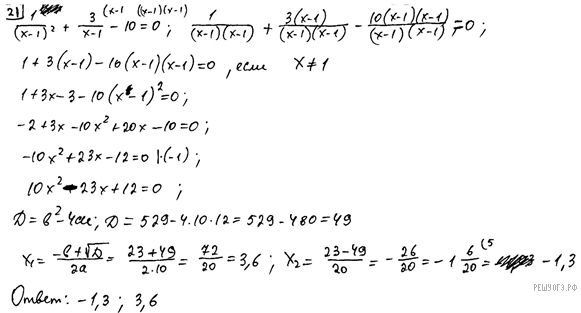 21 1/(x-1)² + 3/(x-1) (x-1 - 10 ((x-1)(x-1) = 0 ; 1/((x-1)(x-1)) + 3(x-1)/((x-1)(x-1)) - 10(x-1)(x-1)/((x-1)(x-1)) = 0 ;
1 + 3(x-1) - 10(x-1)(x-1) = 0 , если x ≠ 1
1 + 3x - 3 - 10(x - 1)² = 0 ;
-2 + 3x - 10x² + 20x - 10 = 0 ;
-10x² + 23x - 12 = 0 |·(-1) ;
10x² - 23x + 12 = 0 ;
D = b² - 4ac ; D = 529 - 4·10·12 = 529 - 480 = 49
x₁ = (-b + √D)/2a = (23 + 49)/(2·10) = 72/20 = 3,6 ; x₂ = (23 - 49)/20 = - 26/20 = -1 6/20 (5 = -1,3
Ответ: -1,3 ; 3,6
РЕШУОГЭ.РФ